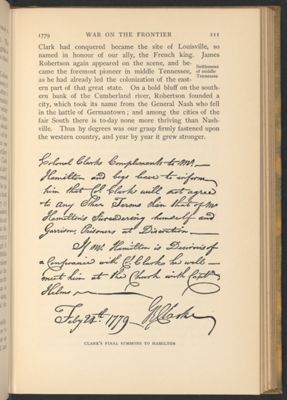 1779 WAR ON THE FRONTIER 111
Clark had conquered became the site of Louisville, so
named in honour of our ally, the French king. James
Robertson again appeared on the scene, and be-
came the foremost pioneer in middle Tennessee,
as he had already led the colonization of the east-
ern part of that great state. On a bold bluff on the south-
ern bank of the Cumberland river, Robertson founded a
city, which took its name from the General Nash who fell
in the battle of Germantown; and among the cities of the
fair South there is to-day none more thriving than Nash-
ville. Thus by degrees was our grasp firmly fastened upon
the western country, and year by year it grew stronger.
Settlement
of middle
Tennessee
Colonel Clarks Compliments to Mr.
Hamilton and begs leave to inform
him that Col. Clark will not agree
to any Other Terms than that of Mr
Hamilton's Surrendering himself and
Garrison, Prisoners at Discretion
If Mr. Hamilton is Desirous of
a Conferance with Col. Clark he will
meet him at the Church with Captn.
Helms
Feby 24th. 1779 G R Clark
CLARK'S FINAL SUMMONS TO HAMILTON